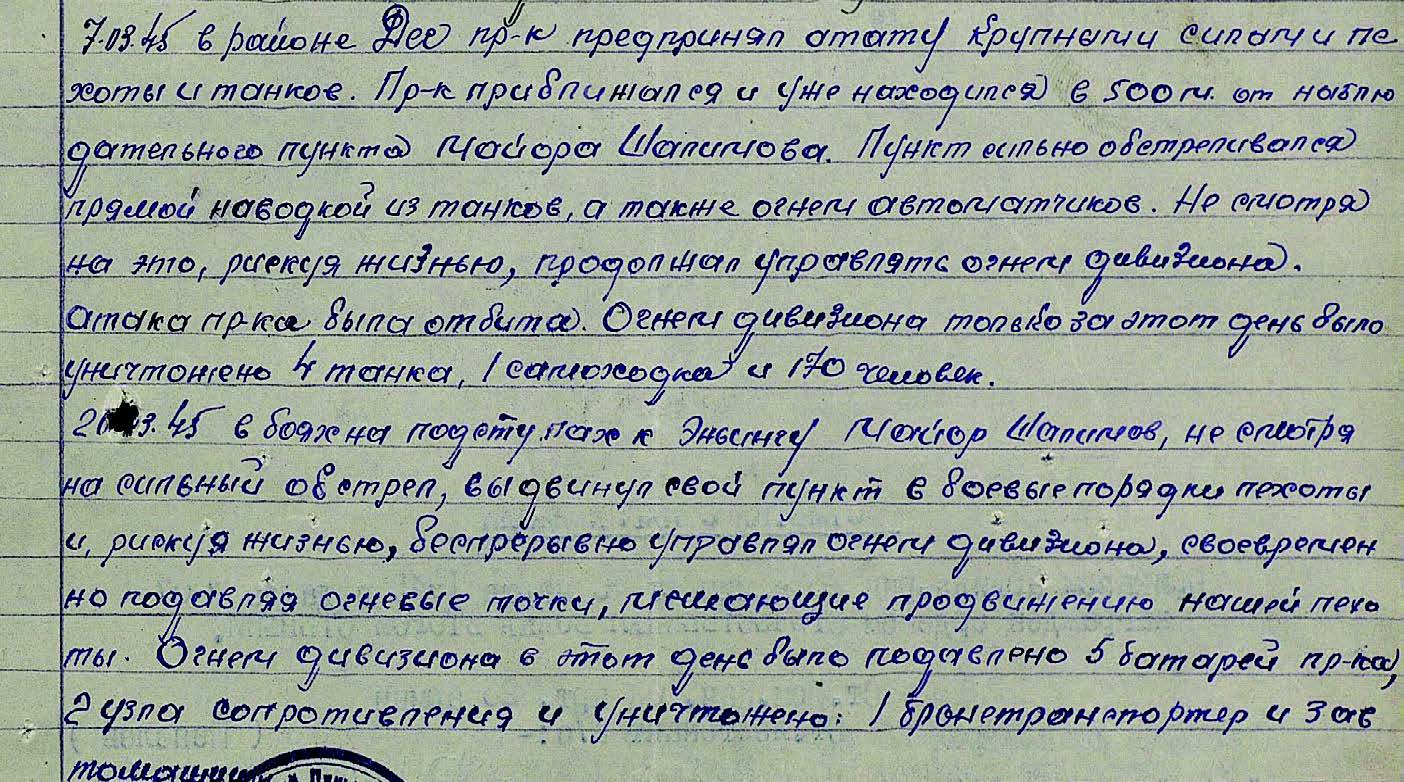 7.03.45 в районе Дег пр-к предпринял атату крупнами силами пе
хоты и танков. Пр-к приближался и уже находился в 500 м. от наблю
дательного пункта майора Шалимова. Пункт сильно обстреливался
прямой наводкой из танков, а также огнем автоматчиков. Не смотря
на это, рискуя жизнью, продолжал управлять огнем дивизиона.
Атака пр-ка была отбита. Огнем дивизиона только за этот день было
уничтожено 4 танка, 1 самоходка и 170 человек.
.45 в боях на подступах к Эньингу Майор Шалимов, не смотря
на сильный обстрел, выдвинул свой пункт в боевые порядки пехоты
и, рискуя жизнью, беспрерывно управлял огнем дивизиона, своевремен
но подавляя огневые точки, мешающие продвижению нашей пехо
ты. Огнем дивизиона в этот день было подавлено 5 батарей пр-ка,
2 узла сопротивления и уничтожено: 1 бронетранспортер и 3 ав